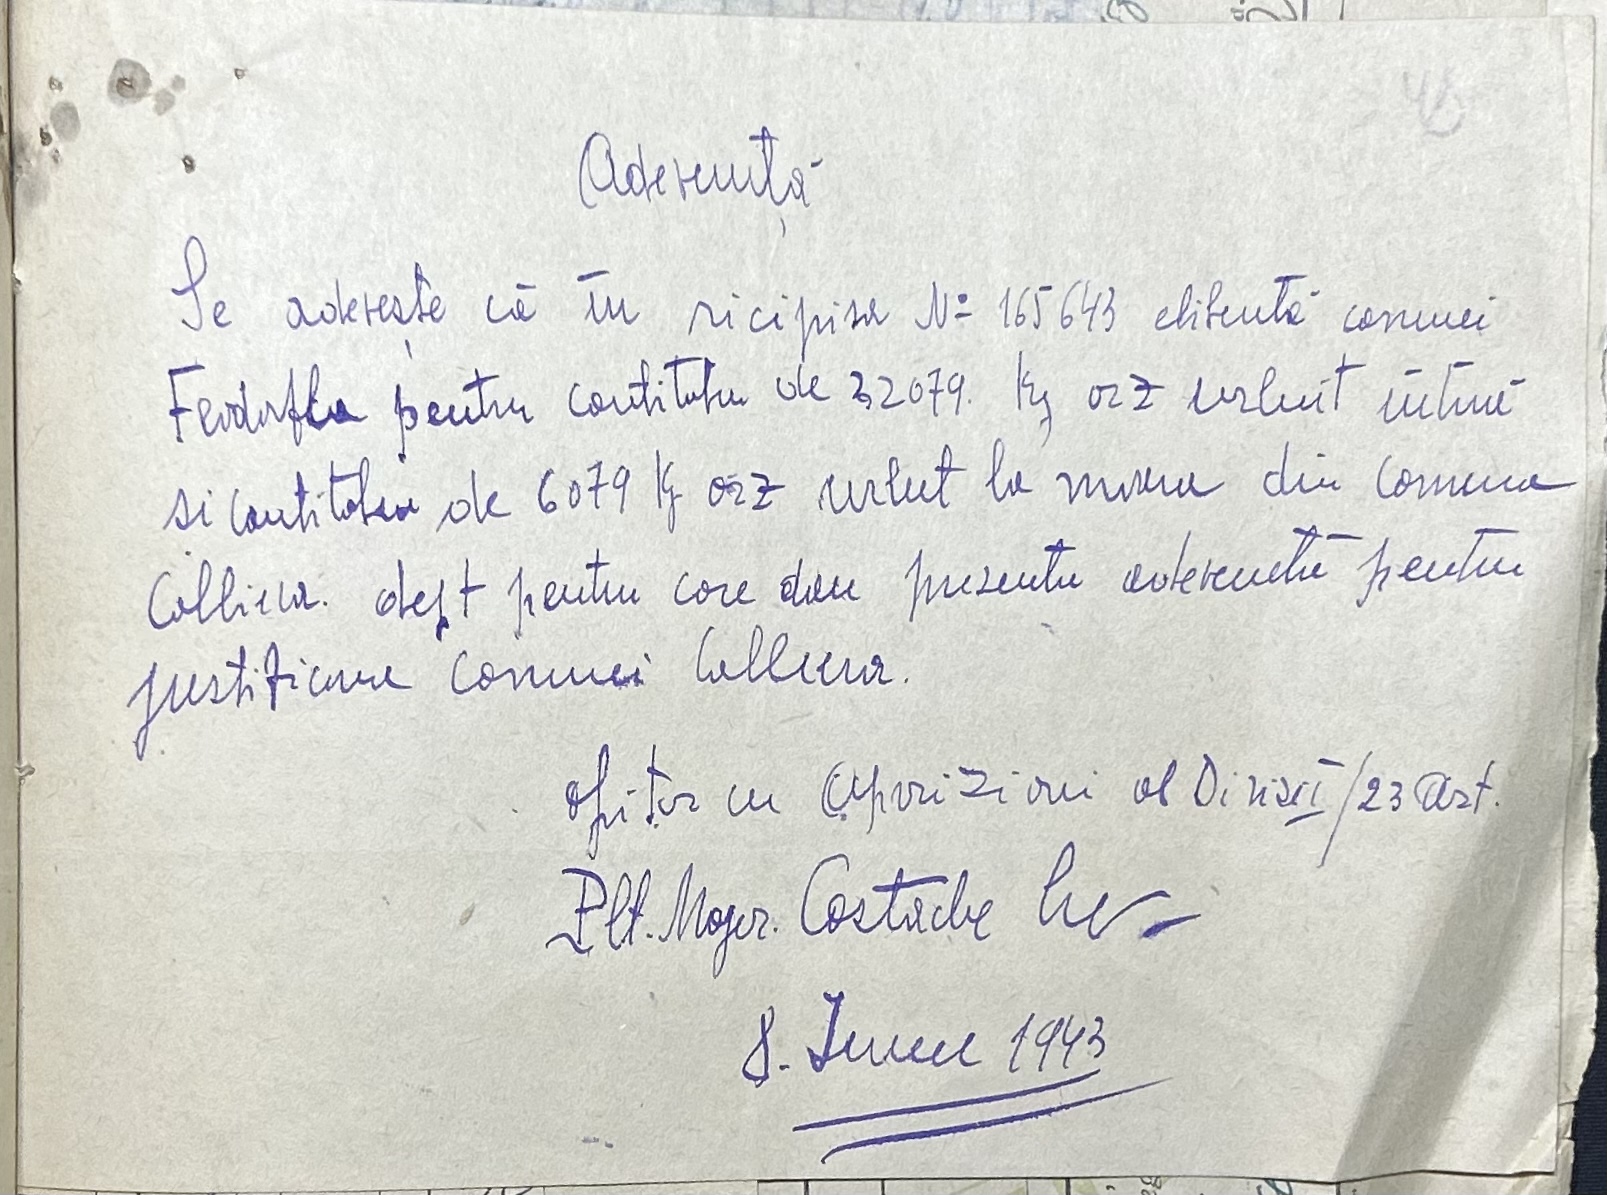 Adeverință
Se adeverește că în ricipisa No 165643 elibentă comunei
pentru cantitatea de 32079. Kg orz urluit intră
si cantitatea de 6079 Kg orz urluit la moara din comuna
drept pentru care dau prezenta adeverință pentru
justificarea comunei
ofițer cu aprovizioni al Diviziei /23 Art.
Plt. Major. Costache
8. Iunie 1943